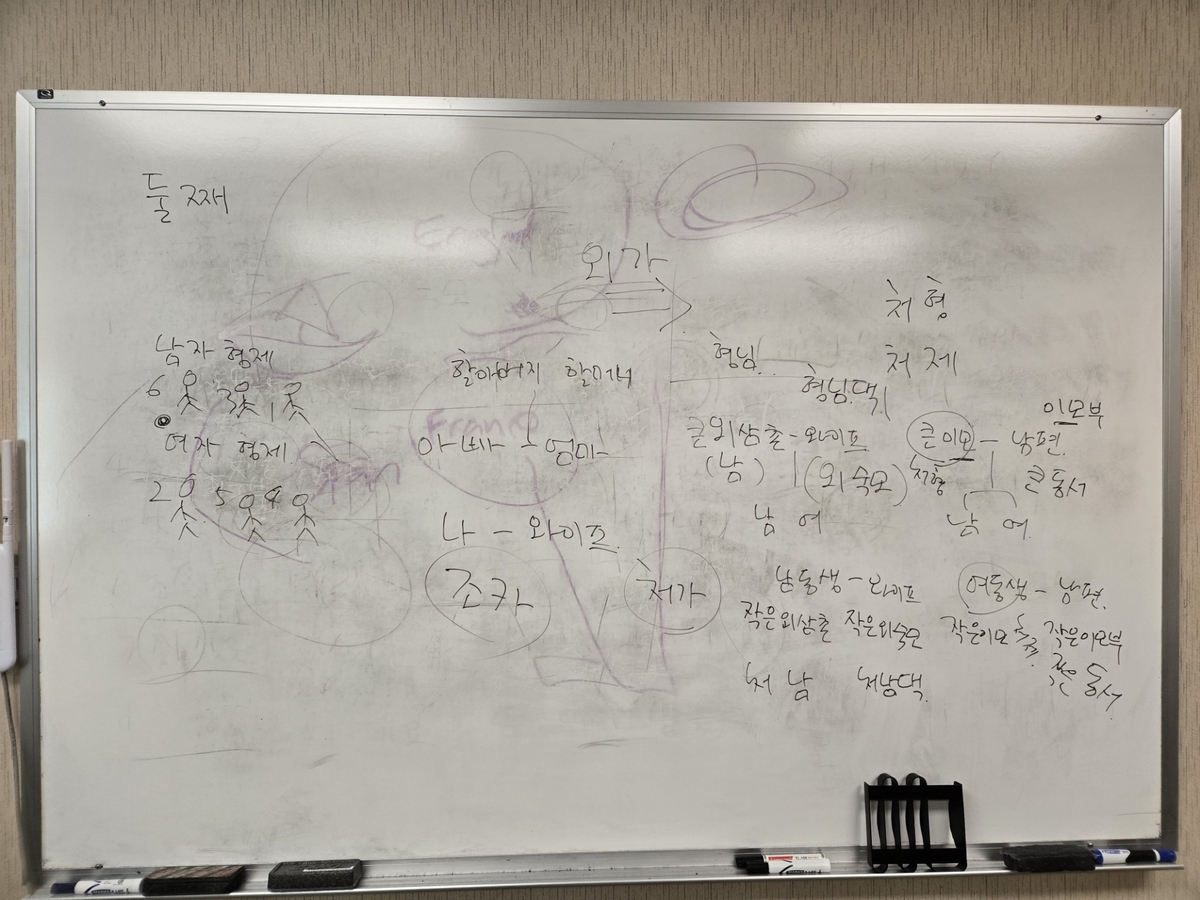 둘 째
외가
처 형
남자 형제
할아버지 할머니
형님
처 제
6 3 1
형님댁
이모부
여자 형제
아빠 - 엄마
큰외삼촌 - 와이프
큰이모 - 남편
(남) (외숙모)
처형
큰 동서
2 5 4
나 - 와이프
남 여
남 여
조카
처가
남동생 - 와이프
여동생 - 남편
작은외삼촌 작은외숙모
작은이모
작은이모부
처 남 처남댁
동서